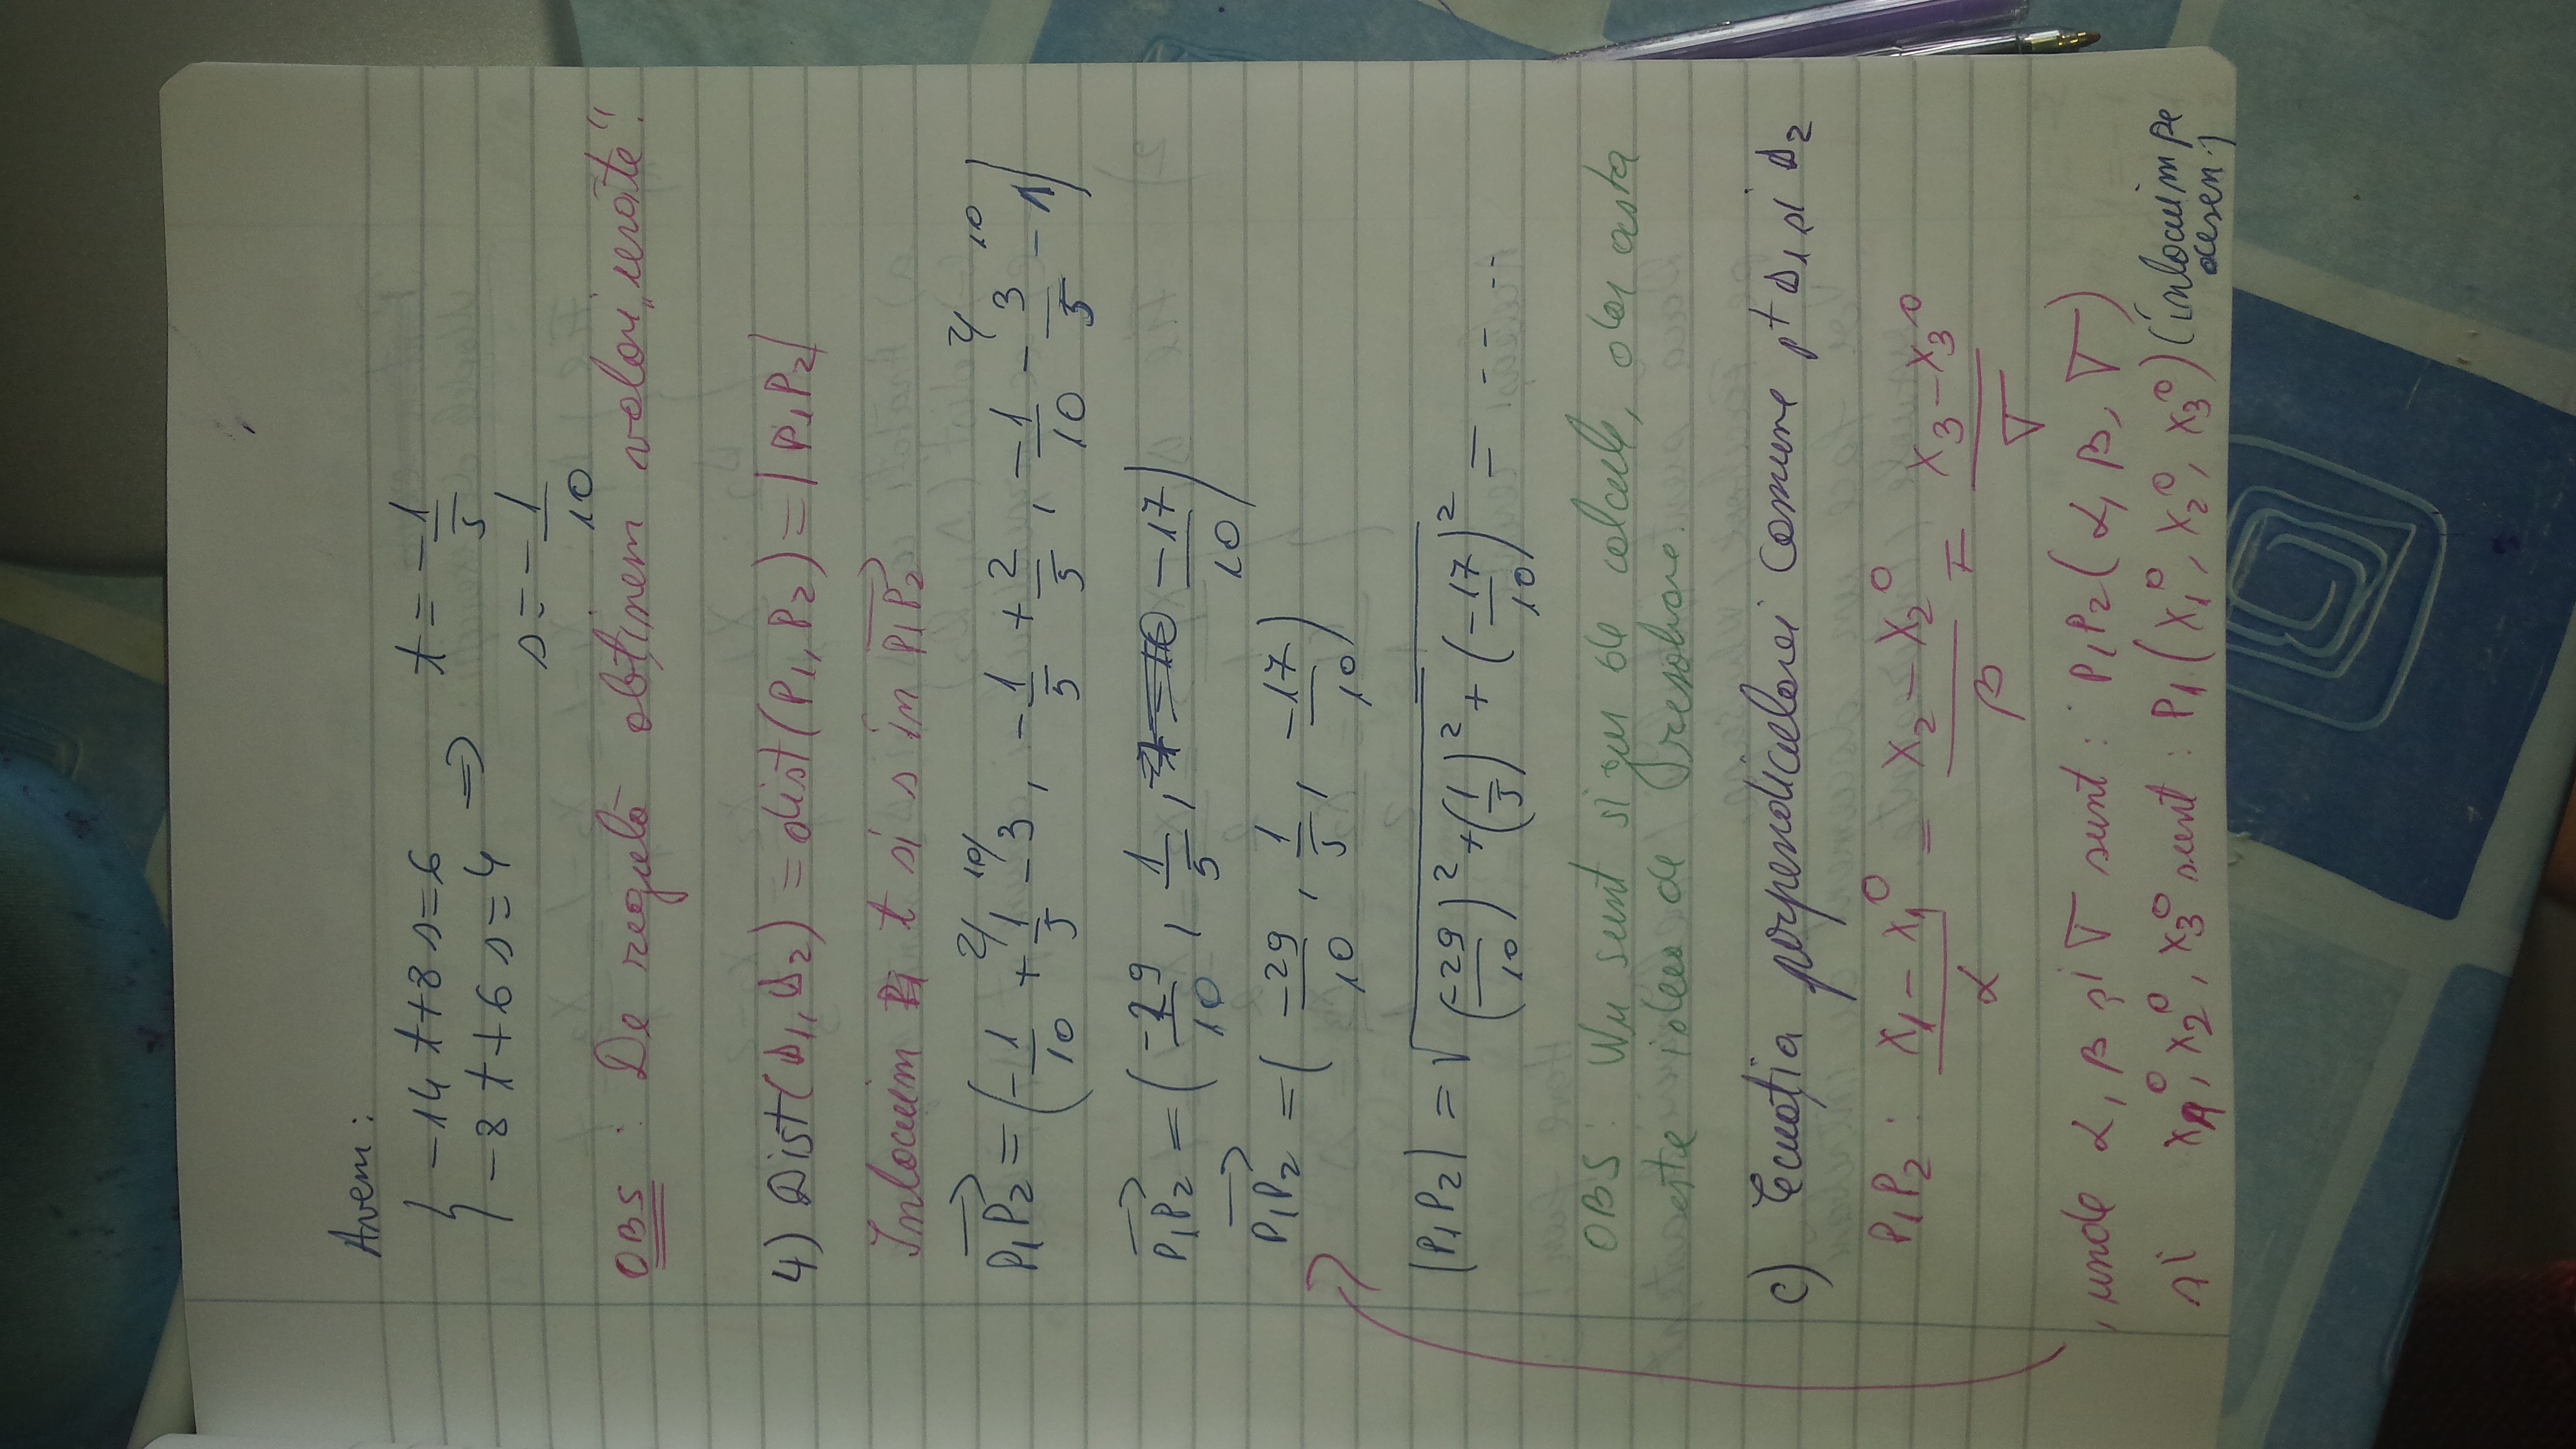 Avem:
{ -14t+8s=6
-8t+6s=4 ⇒ t = -1/5
s = -1/10
OBS : De regulă obținem valori „urâte"!
4) Dist(Δ1, Δ2) = dist(P1, P2) = |P1P2|
Inlocuim t si s în P1P2
P1P2 = (-1/10 + 1/5 - 3, -1/5 + 2/5, -1/10 - 3/5 - 1)
P1P2 = (-29/10, 1/5, -17/10)
P1P2 = (-29/10, 1/5, -17/10)
|P1P2| = √(-29/10)² + (1/5)² + (-17/10)² = -- --
OBS: Nu sunt sigur de calcule, dar asta
este ideea de rezolvare.
c) Ecuația perpendicularei comune pt Δ1 și Δ2
P1P2 : (x1 - x1⁰)/α = (x2 - x2⁰)/β = (x3 - x3⁰)/Γ
, unde α, β și Γ sunt: P1P2(α, β, Γ)
si x1⁰, x2⁰, x3⁰ sunt: P1(x1⁰, x2⁰, x3⁰) (inlocuim pe
desen.)